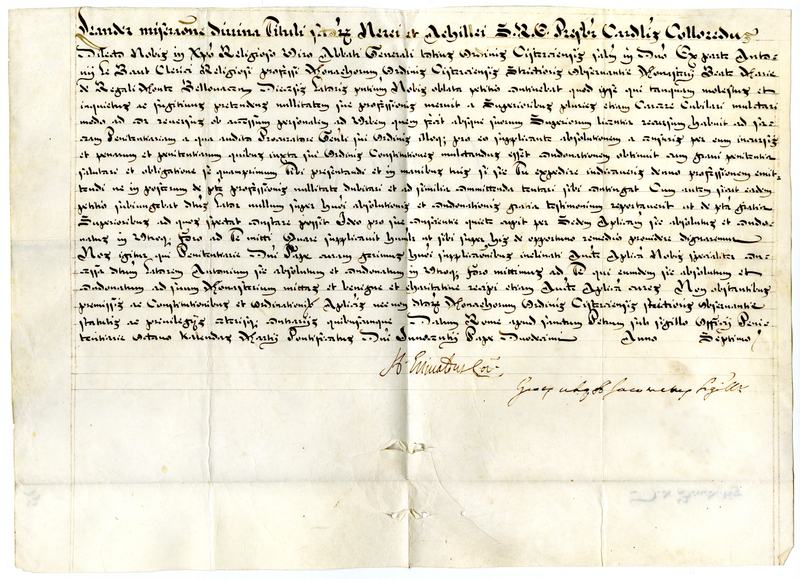 Leander miseraoñe divina Tituli sctõrũ Nerei et Achillei S. R. E. Presbr̃ Cardlĩs Colloredus
Dilecto Nobis in Xp̃o Religioso Viro Abbati Generali totius Ordinis Cistercien̄sis salm̃ in Dño Ex parte Anto-
nij Le Baut Clerici Religiosi professi Monachorum Ordinis Cistercien̄sis Strictioris Observantie Monastrij Beate Marie
de Regali Monte Bellovacen̄ Diecesis Latoris pñtium Nobis oblata petitio continebat quod ipse qui tanquam molestus et
inquietus ac fugitivus pretendens nullitatem sue professionis meruit a Superioribus pluries etiam Carcere Cubiculari mulctari
modo ad cor reversus ob accessum personalem ad Urbem quem fecit absque suorum Superiorum licentia recursum habuit ad sac-
ram Penitentiariam a qua audito Procuratore Gen̄li sui Ordinis pro eo supplicante absolutionem a censuris per eum incursis
et penarum et penitentiarum quibus iuxta sui Ordinis Constitutiones mulctandus esset condonationem obtinuit cum gravi penitentia
salutari et obligatione se quamprimum tibi presentandi et in manibus tuis si sic tu expedire indicaveris denuo professionem emit-
tendi ne in posterum de pte professionis nullitate dubitari et ad similia committenda tentari sibi contingat Cum autem sicut eadem
petitio subiungebat dictus Lator nullum super huiõi absolutionis et condonationis gratia testimonium reportaverit ut de pta gratia
Superioribus ad quos spectat constare posset Ideo pro sue conscientie quiete cupit per Sedem Aplicam sic absolutus et condo-
natus in utroq̃ foro ad te mitti Quare supplicavit humilr̃ ut sibi super his de opportuno remedio providere dignaremur
Nos igitur qui Penitentiarie Dñi Pape curam gerimus huiõi supplicationibus inclinati Auct̃e Aplica Nobis specialiter con-
cessa dictum Latorem Antonium sic absolutum et condonatum in utroq̃ foro mittimus ad te qui eumdem sic absolutum et
condonatum ad suum Monasterium mittas et benigne et charitative recipi etiam Auct̃e Aplica cures Non obstantibus
premissis ac Constitutionibus et Ordinationib̃ Aplicis nec non dictorũ Monachorum Ordinis Cistercien̄sis strictioris Observantie
statutis ac privilegijs ceterisq̃ contrarijs quibuscunque Datum Rome apud sanctum Petrum sub sigillo Officij Peni-
tentiarie Octavo Kalendas Martij Pontificatus Dñi Innocentij Pape Duodecimi Anno Septimo